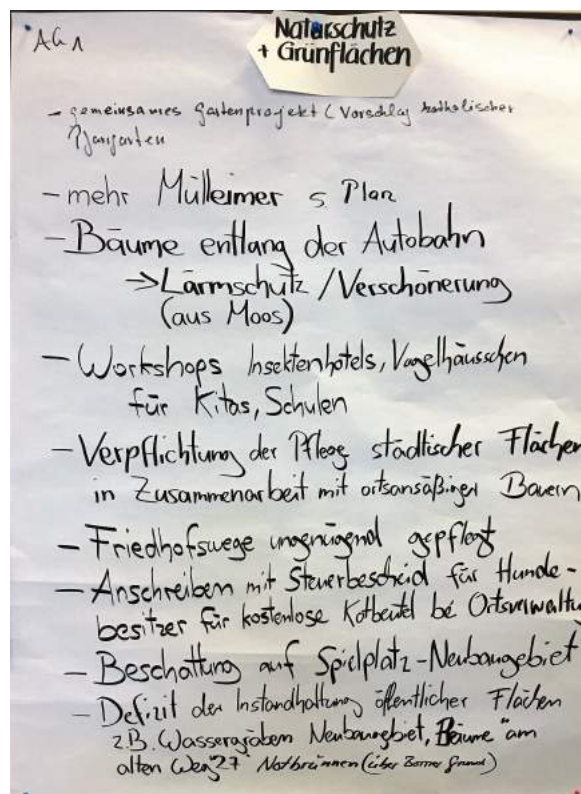 AG 1
Naturschutz
+ Grünflächen
- gemeinsames Gartenprojekt (Vorschlag katholischer
- mehr Mülleimer s. Plan
- Bäume entlang der Autobahn
→ Lärmschutz / Verschönerung
(aus Moos)
- Workshops Insektenhotels, Vogelhäusschen
für Kitas, Schulen
- Verpflichtung der Pflege städtischer Flächen
in Zusammenarbeit mit ortsansäßigen Bauern
- Friedhofswege ungenügend gepflegt
- Anschreiben mit Steuerbescheid für Hunde-
besitzer für kostenlose Kotbeutel bei Ortsverwaltu
- Beschattung auf Spielplatz-Neubaugebiet
- Defizit der Instandhaltung öffentlicher Flächen
z.B. Wassergräben Neubaugebiet, Bäume "am
alten Weg 27" Notbrunnen (über